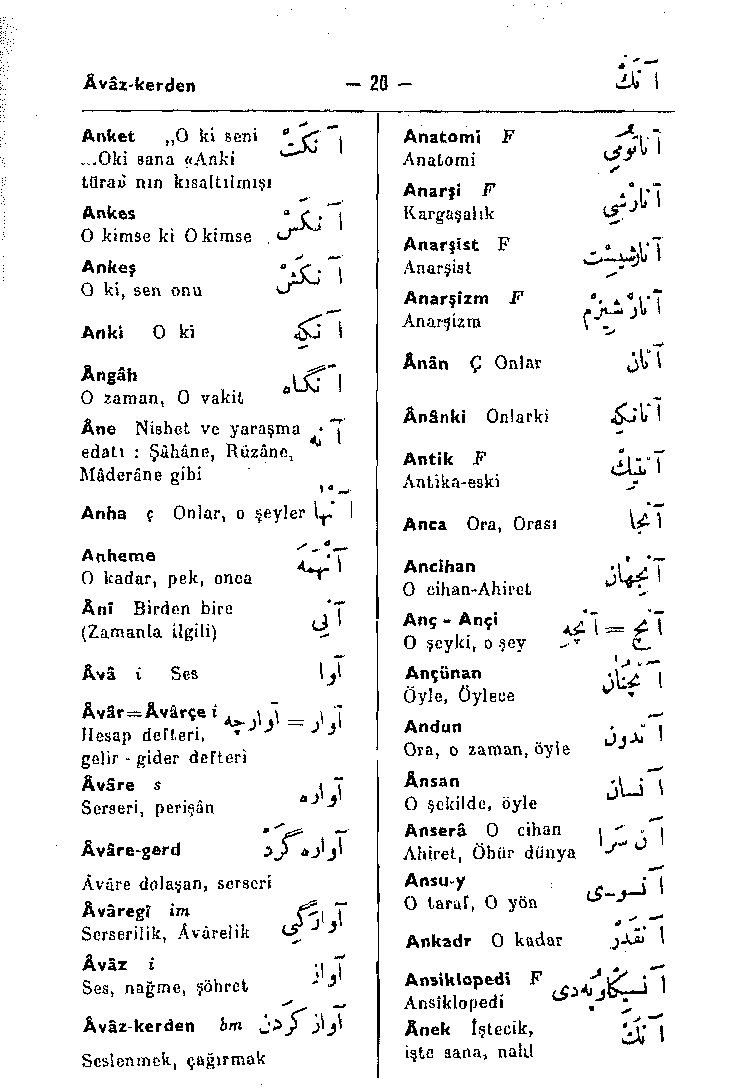 Âvâz-kerden — 20 — آنَكْ
Anatomi F آناتومی
Anatomi
Anarşi F آنارْشی
Kargaşalık
Anarşist F آنارشیست
Anarşist
Anarşizm F آنارْشیزْم
Anarşizm
Ânân Ç Onlar آنان
Ânânki Onlarki آنانكه
Antik F آنتیك
Antika-eski
Anca Ora, Orası آنجا
Ancihan آنجهان
O cihan-Ahiret
Anç - Ançi آنچ = آنچه
O şeyki, o şey
Ançünan آنچنان
Öyle, Öylece
Andun آندون
Ora, o zaman, öyle
Ânsan آنسان
O şekilde, öyle
Anserâ O cihan آن سرا
Ahiret, Öbür dünya
Ansu-y آنسوی
O taraf, O yön
Ankadr O kadar آنقدر
Ansiklopedi F
Ansiklopedi
Ânek İştecik, آنك
işte sana, nahl
Anket „O ki seni آنكت
...Oki sana «Anki
türaü nın kısaltılmışı
Ankes آنكس
O kimse ki O kimse
Ankeş آنكش
O ki, sen onu
Anki O ki آنكه
Ângâh آنگاه
O zaman, O vakit
Âne Nisbet ve yaraşma آنه
edatı : Şâhâne, Rûzâne,
Mâderâne gibi
Anha ç Onlar, o şeyler آنها
Anheme آنهمه
O kadar, pek, onca
Ânî Birden bire آنی
(Zamanla ilgili)
Âvâ i Ses آوا
Âvâr=Âvârçe i آوار = آوارجه
Hesap defteri,
gelir - gider defteri
Âvâre s آواره
Serseri, perişân
Âvâre-gerd آواره گرد
Âvâre dolaşan, serseri
Âvâregî im آوارگی
Serserilik, Âvârelik
Âvâz i آواز
Ses, nağme, şöhret
Âvâz-kerden bm آواز كردن
Seslenmek, çağırmak